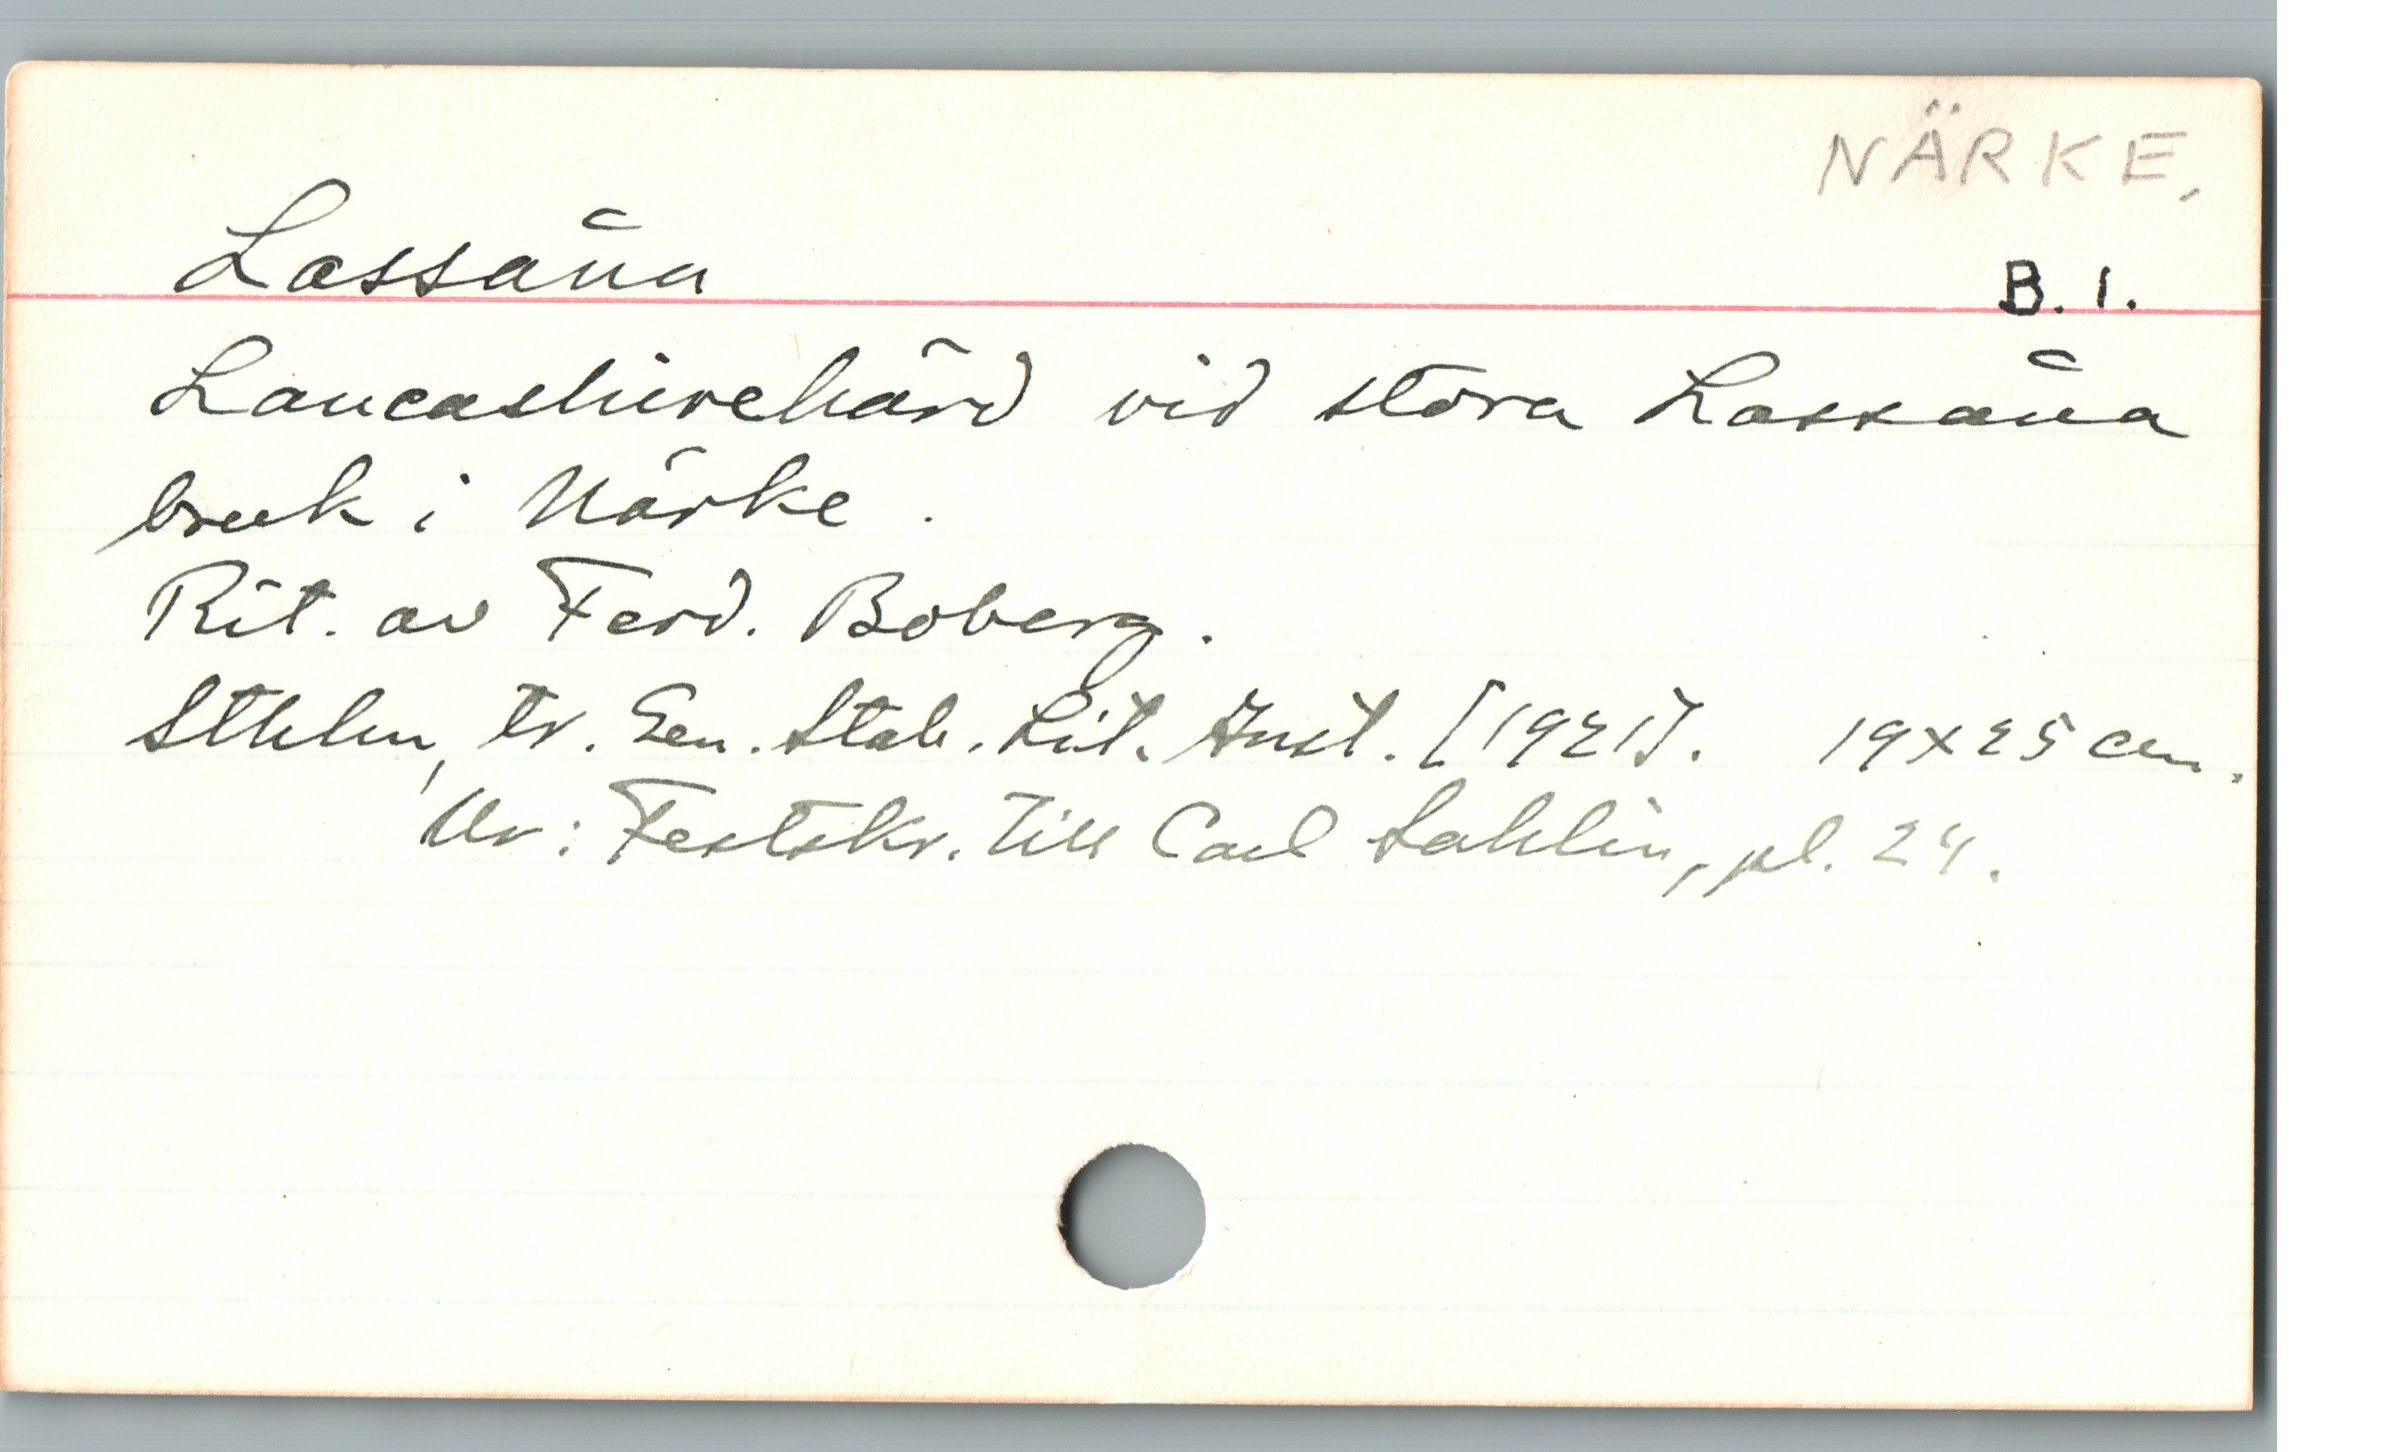 NÄRKE.
Lassåna
B. 1.
Lancashirehärd vid stora Lassåna
bruk i Närke.
Rit. av Ferd. Boberg.
Sthlm, tr. Gen. Stab. Lit. Inst. [1921]. 19x25 cm.
Ur: Festskr. till Carl Sahlin, pl. 24.